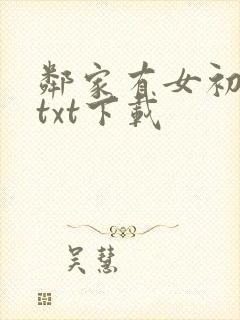 鄰家有女初
txt下載
吴慧